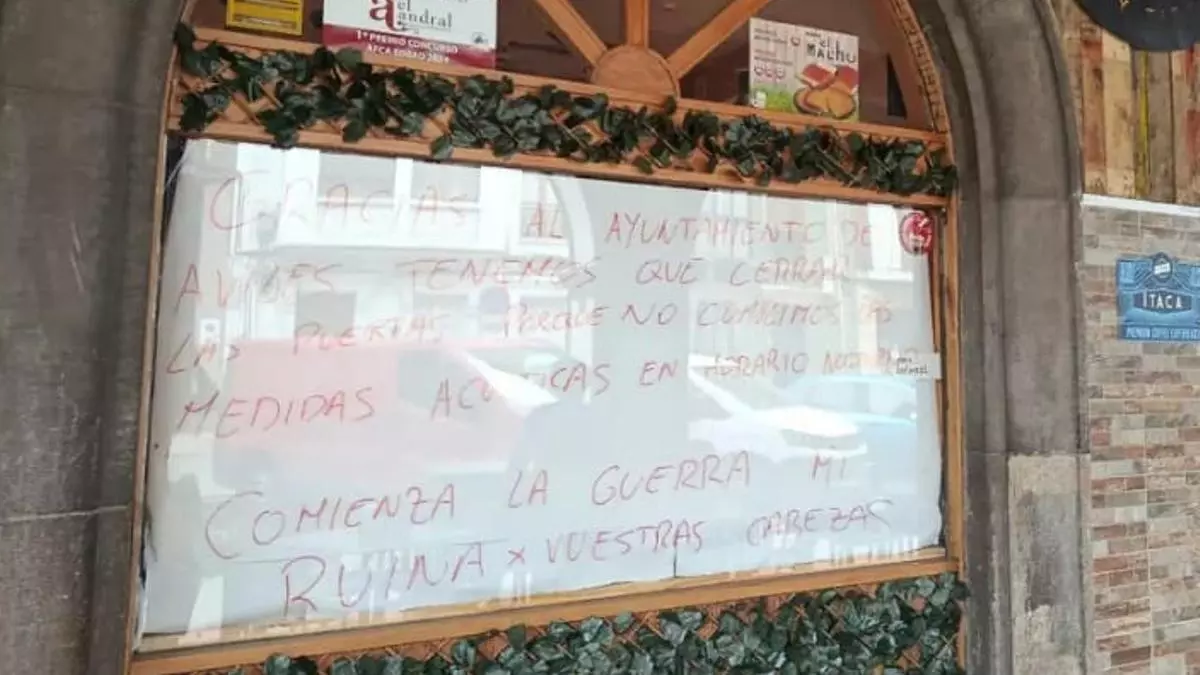 el
andral
1º PREMIO CONCURSO
el
MACHU
GRACIAS AL AYUNTAMIENTO DE
AVILES TENEMOS QUE CERRAR
LAS PUERTAS PORQUE NO CUMPLIMOS LAS
MEDIDAS ACUSTICAS EN HORARIO
COMIENZA LA GUERRA MI
RUINA x VUESTRAS CABEZAS
ITACA